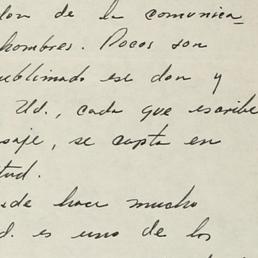 don de la comunica=
hombres. Pocos son
sublimado ese don y
Ud., cada que escribe
saje, se capta en
tud.
sde hace mucho
d. es uno de los